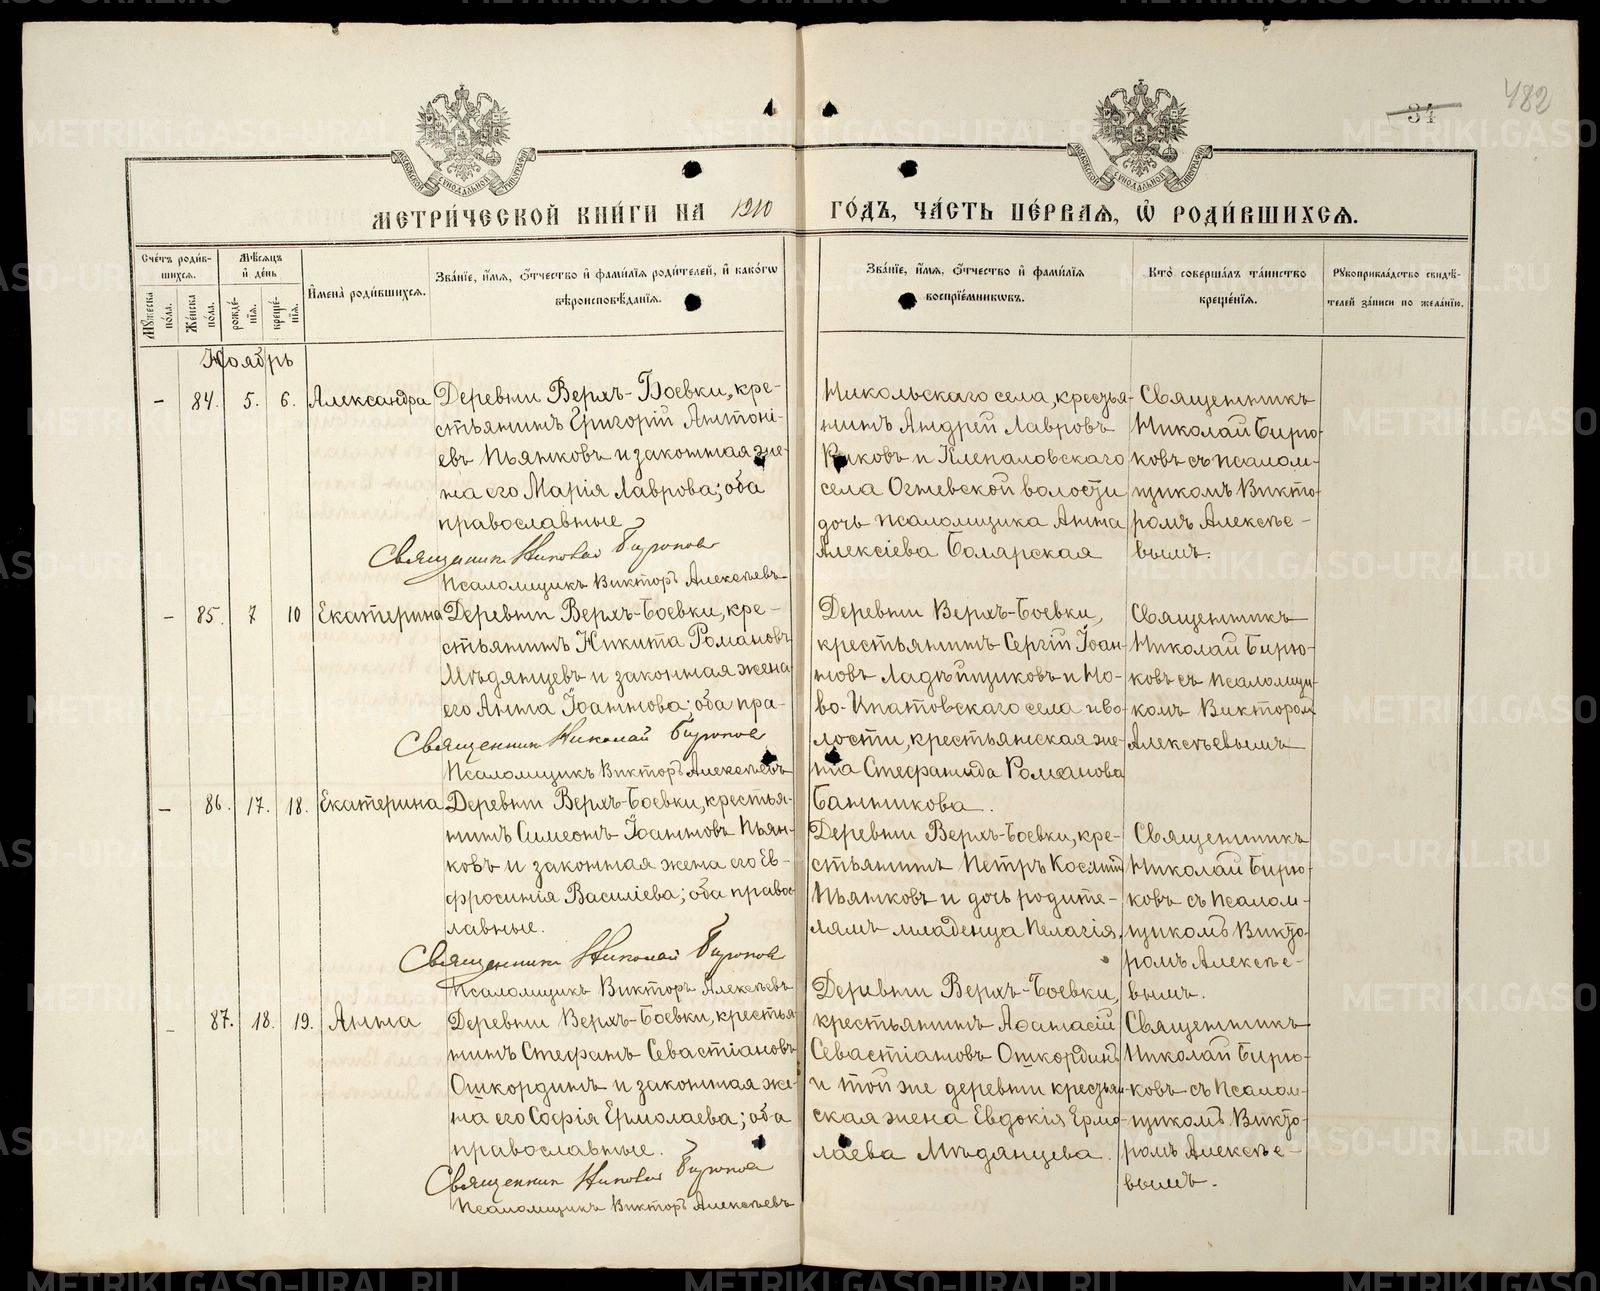 482
34
МОСКОВСКОЙ СѴНОДАЛЬНОЙ ТИПОГРАФІИ
МОСКОВСКОЙ СѴНОДАЛЬНОЙ ТИПОГРАФІИ
МЕТРИ́ЧЕСКОЙ КНИ́ГИ НА 1910 ГО́ДЪ, ЧА́СТЬ ПЕ́РВАѦ, Ѡ҆ РОДИ́ВШИХСѦ.
Сче́тъ роди́в-
шихсѧ.
Мꙋ́жеска по́ла.
Же́нска по́ла.
Мѣ́сѧцъ
и҆ де́нь
рожде́-
нїѧ.
креще́-
нїѧ.
И҆мена̀ роди́вшихсѧ.
Зва́нїе, и҆́мѧ, ѻ҆́тчество и҆ фами́лїѧ роди́телей, и҆ како́гѡ
вѣроисповѣ́данїѧ.
Зва́нїе, и҆́мѧ, ѻ҆́тчество и҆ фами́лїѧ
воспрїе́мникѡвъ.
Кто̀ соверша́лъ та́инство
креще́нїѧ.
Рꙋкоприкла́дство свидѣ́-
телей за́писи по жела́нїю.
Ноябрь
- 84. 5. 6. Александра
Деревни Верхъ-Боевки, кре-
стьянинъ Григорій Антоні-
евъ Пьянковъ и законная же-
на его Марія Лаврова; оба
православные
Священникъ Николай Бирюковъ
Псаломщикъ Викторъ Алексѣевъ
Никольскаго села, крестья-
нинъ Андрей Лавровъ
и Клепаловскаго
села Огневской волости
дочь псаломщика Анна
Алексіева Болярская
Священникъ
Николай Бирю-
ковъ съ псалом-
щикомъ Викто-
ромъ Алексѣе-
вымъ.
- 85. 7 10 Екатерина
Деревни Верхъ-Боевки, кре-
стьянинъ Никита Романовъ
Мѣдянцевъ и законная жена
его Анна Іоаннова; оба пра-
Священникъ Николай Бирюковъ
Псаломщикъ Викторъ Алексѣевъ
Деревни Верхъ-Боевки,
крестьянинъ Сергій Іоан-
новъ Ладѣйщиковъ и Но-
во-Ипатовскаго села и во-
лости, крестьянская же-
на Стефанида Романова
Банникова.
Священникъ
Николай Бирю-
ковъ съ псаломщи-
комъ Викторомъ
Алексѣевымъ
- 86. 17. 18. Екатерина
Деревни Верхъ-Боевки, крестья-
нинъ Симеонъ Іоанновъ Пьян-
ковъ и законная жена его Ев-
фросинія Василіева; оба право-
лавные.
Священникъ Николай Бирюковъ
Псаломщикъ Викторъ Алексѣевъ
Деревни Верхъ-Боевки, кре-
стьянинъ Петръ Косминъ
Пьянковъ и дочь родите-
лямъ младенца Пелагія.
Священникъ
Николай Бирю-
ковъ съ псалом-
щикомъ Викто-
ромъ Алексѣе-
вымъ.
- 87. 18. 19. Анна
Деревни Верхъ-Боевки, крестья
нинъ Стефанъ Севастіановъ
Ошкординъ и законная же-
на его Софія Ермолаева; оба
православные.
Священникъ Николай Бирюковъ
Псаломщикъ Викторъ Алексѣевъ
Деревни Верхъ-Боевки,
крестьянинъ Афанасій
Севастіановъ Ошкординъ
и той же деревни крестьян-
ская жена Евдокія Ермо-
лаева Мѣдянцева.
Священникъ
Николай Бирю-
ковъ съ псалом-
щикомъ Викто-
ромъ Алексѣе-
вымъ.
METRIKI.GASO-URAL.RU